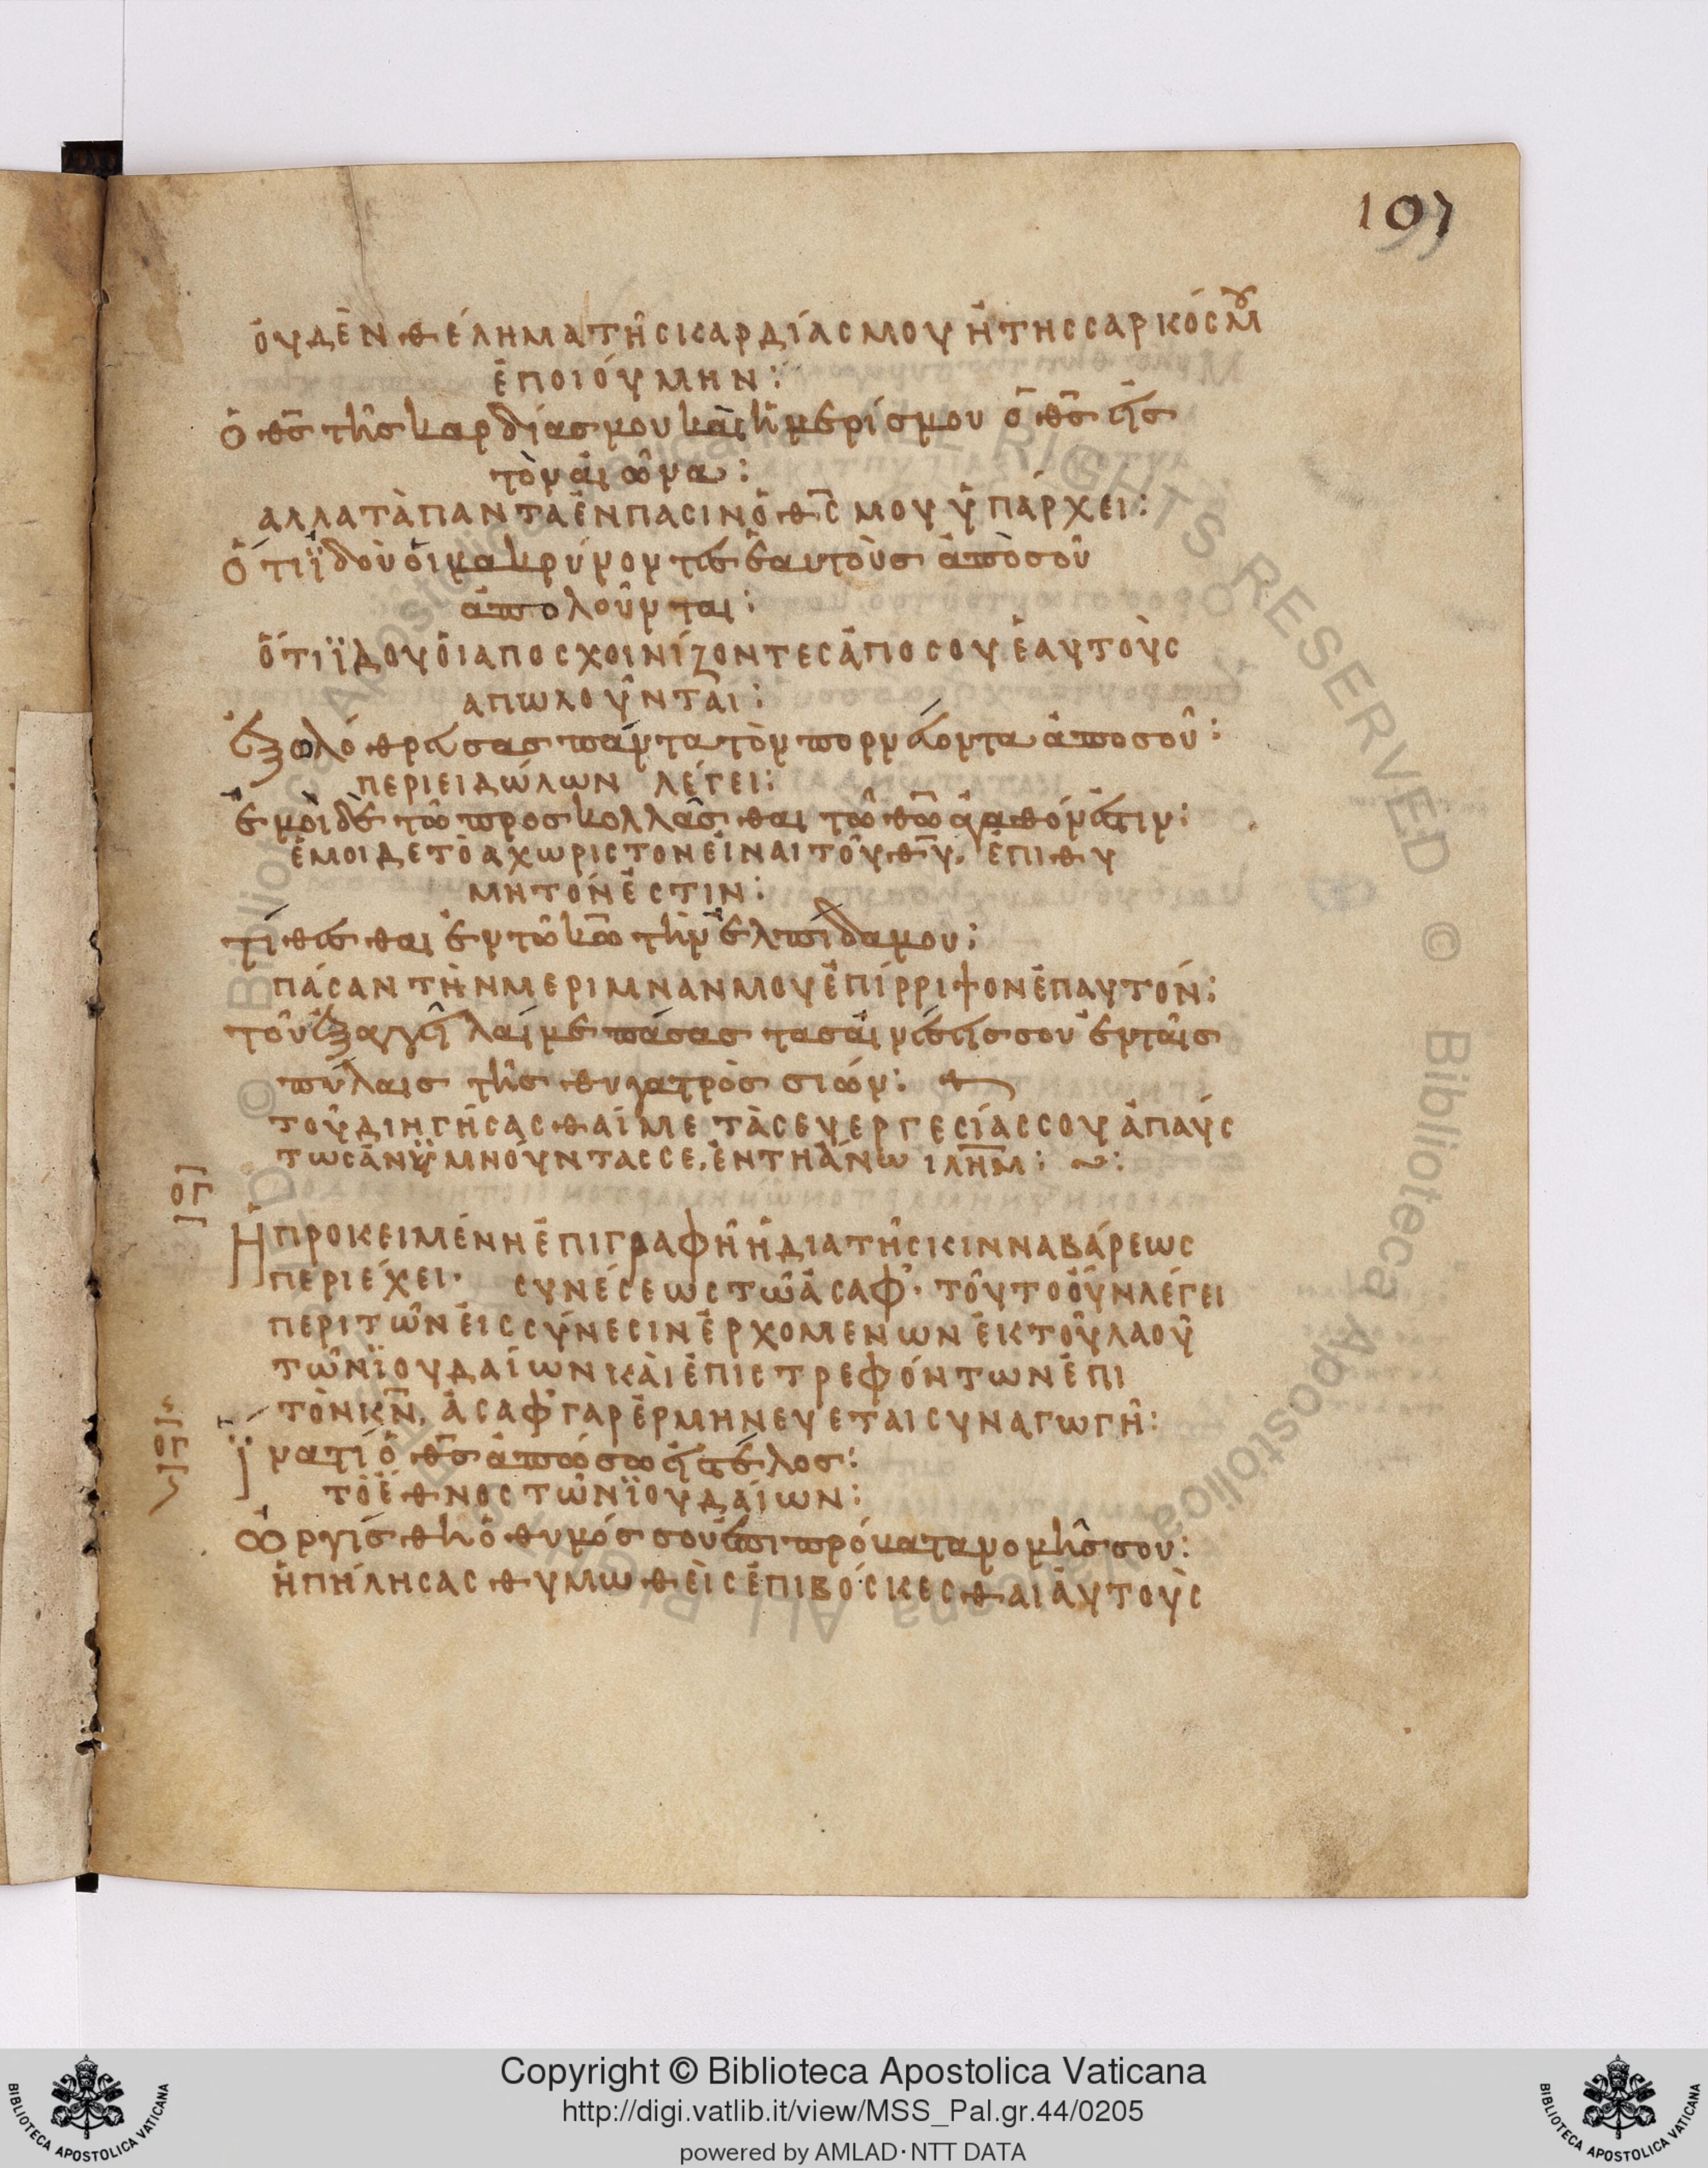 107
οὐδὲν θέλημα τῆς καρδίας μου ἢ τῆς σαρκός μου
ἐποιούμην:
ὁ θς τῆς καρδίας μου καὶ ἡ μερίς μου ὁ θς εἰς
τὸν αἰῶνα:
αλλα τὰ πάντα ἐν πασιν ὁ θς μου ὑπάρχει:
Ὅτι ἰδοὺ οἱ μακρύνοντες ἑαυτοὺς ἀπὸ σοῦ
ἀπολοῦνται:
ὅτι ϊδου οἱ αποσχοινίζοντες ἀπο σου ἑαυτοὺς
απωλοῦνται:
Ἐξολόθρευσας πάντα τὸν πορνεύοντα ἀπο σοῦ:
περι ειδώλων λέγει:
ἐμοὶ δὲ τὸ προσκολλᾶσθαι τῶ θῶ ἀγαθόν ἐστιν:
ἐμοι δε τὸ αχωριστον εἶναι τοῦ θυ, ἐπιθυ
μητόν ἐστιν:
τίθεσθαι ἐν τῶ κω τὴν ἐλπίδα μου:
πάσαν τὴν μεριμναν μου ἐπίρριψον ἐπ αυτόν:
τοῦ ἐξαγγεῖλαί με πάσας τας αἰνέσεις σου ἐν ταῖς
πύλαις τῆς θυγατρὸς σιών:
τοῦ διηγήσασθαί με τὰς ευεργεσίας σου ἀπαύσ
τως ἀνϋμνούντας σε, ἐν τη ἄνω ιλημ:
ογ
Ἡ προκειμένη ἐπιγραφὴ ἡ δια τῆς κινναβάρεως
περιέχει· συνέσεως τῶ ἀσάφ· τοῦτο οὖν λέγει
περι τῶν εἰς σύνεσιν ἐρχομενων ἐκ τοῦ λαοῦ
τῶν ϊουδαίων καὶ ἐπιστρεφόντων ἐπι
τὸν κν, ἀσαφ γαρ ἑρμηνευεται συναγωγῆ:
ογ
Ἱνα τί ὁ θς ἀπώσω εἰς τέλος:
τὸ ἔθνος τῶν ϊουδαίων:
Ὠργίσθη ὁ θυμός σου ἐπι πρόβατα νομῆς σου:
ἠπήλησας θυμωθεὶς ἐπιβόσκεσθαι αὐτοὺς
Copyright © Biblioteca Apostolica Vaticana
http://digi.vatlib.it/view/MSS_Pal.gr.44/0205
powered by AMLAD·NTT DATA
BIBLIOTECA APOSTOLICA VATICANA
BIBLIOTECA APOSTOLICA VATICANA